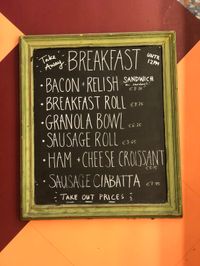 Take Away BREAKFAST UNTIL 12PM
· BACON + RELISH SANDWICH
· BREAKFAST ROLL
· GRANOLA BOWL
· SAUSAGE ROLL
· HAM + CHEESE CROISSANT
· SAUSAGE CIABATTA
TAKE OUT PRICES